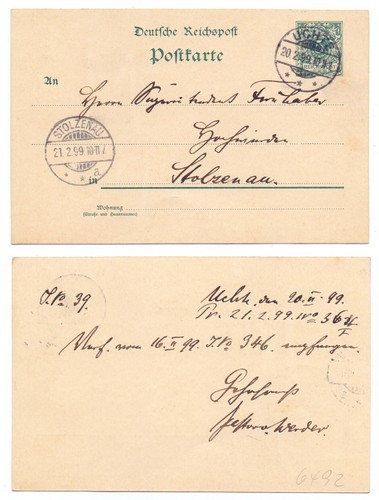 Deutsche Reichspost
Postkarte
UCHTE
20.2.99.10-11V.
An
Herrn Superintendent Fernhaber
STOLZENAU
21.2.99.10-11V
a
Hochwürden
in Stolzenau.
Wohnung
(Straße und Hausnummer)
J. No 39.
Uchte, den 20. II. 99.
Pr. 21.2.99. No 36
Verf. vom 16. II 99. J. No 346. empfangen.
Gehorsamst
Pastor Werder.
6492